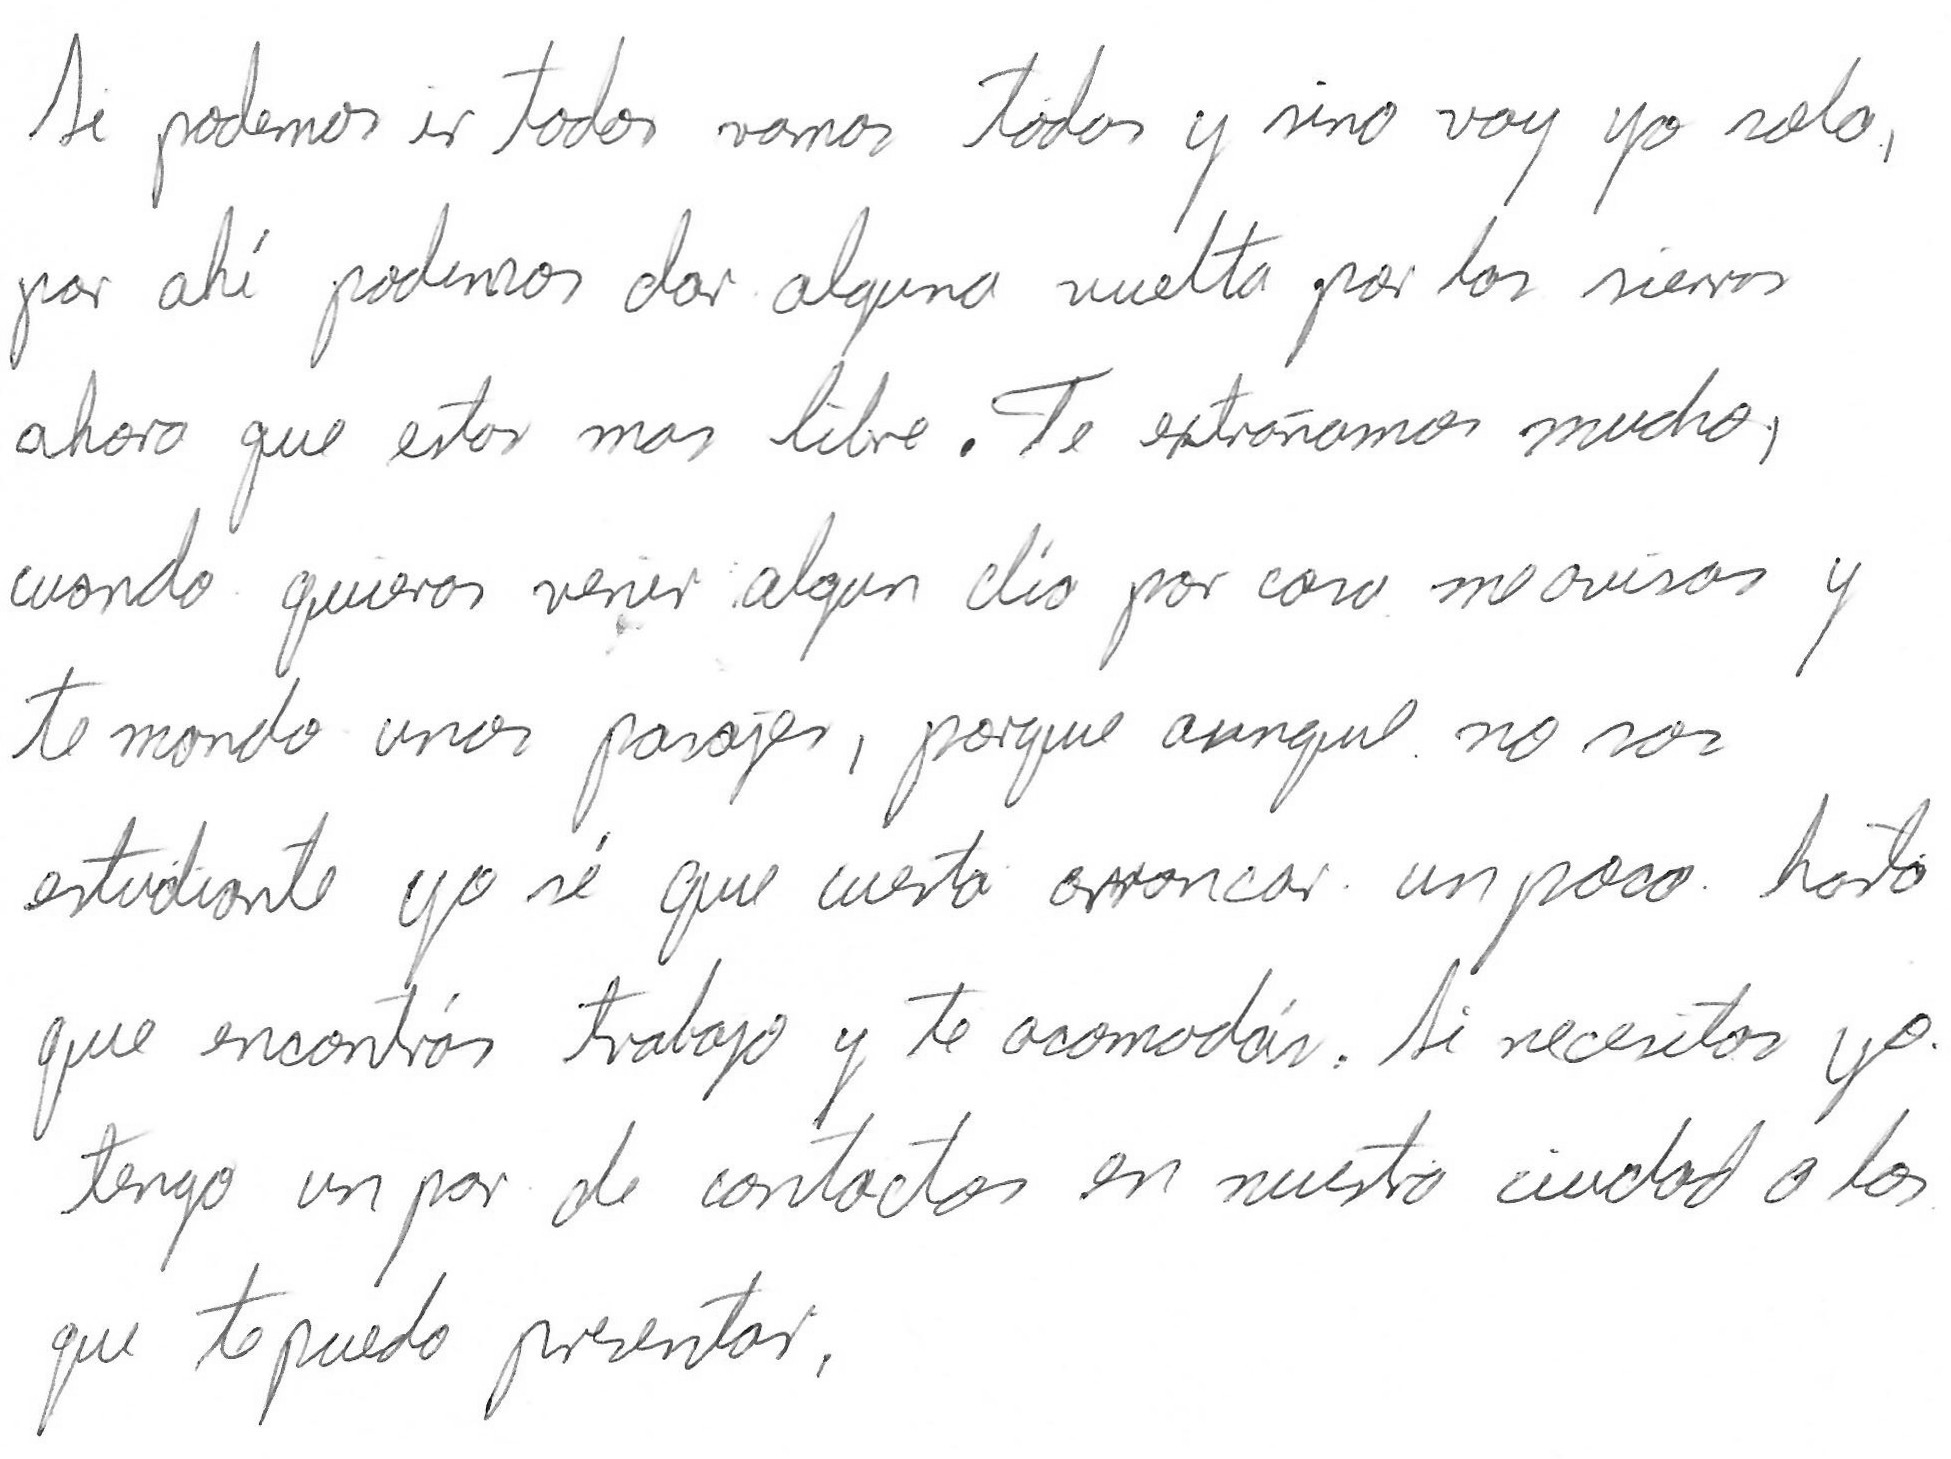 Si podemos ir todos vamos todos y sino voy yo solo,
por ahí podemos dar alguna vuelta por las sierras
ahora que estas mas libre. Te extrañamos mucho,
cuando quieras venir algun día por casa me avisas y
te mando unos pasajes, porque aunque no sos
estudiante yo sé que cuesta arrancar un poco hasta
que encontrás trabajo y te acomodás. Si necesitas yo
tengo un par de contactos en nuestra ciudad a los
que te puedo presentar.